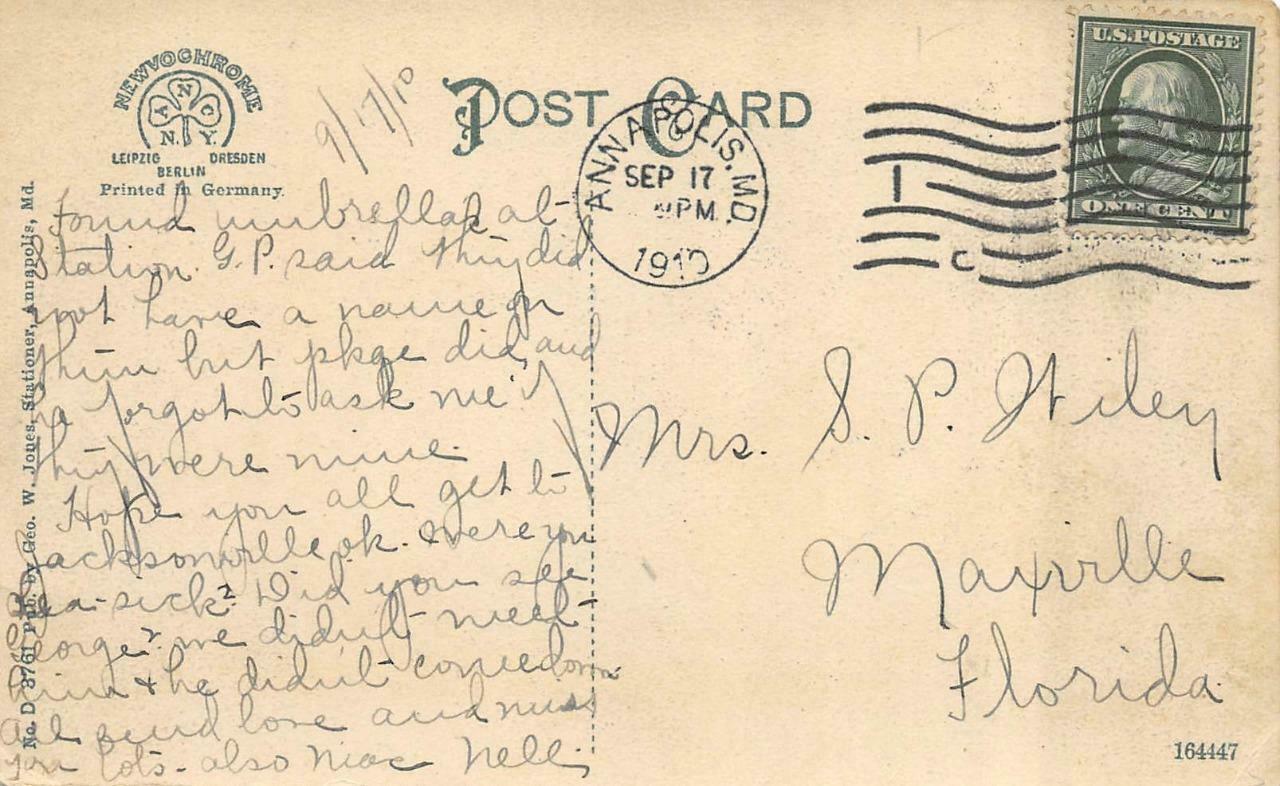 NEWVOCHROME
ANC
N. Y.
LEIPZIG DRESDEN
BERLIN
Printed in Germany.
9/17/10
POST CARD
ANNAPOLIS, MD.
SEP 17
PM
1910
1
C
U.S. POSTAGE
ONE CENT
No. D 3761 Pub. by Geo. W. Jones, Stationer, Annapolis, Md.
Found umbrellas at
Station. G.P. said they did
not have a name on
them but pkge did, and
he forgot to ask me if
they were mine.
Hope you all get to
Jacksonville ok. Were you
sea-sick? Did you see
George? We didn't meet
him & he didn't come down
all send love and miss
you lots - also Mac Nell
Mrs. S. P. Wiley
Maxville
Florida
164447